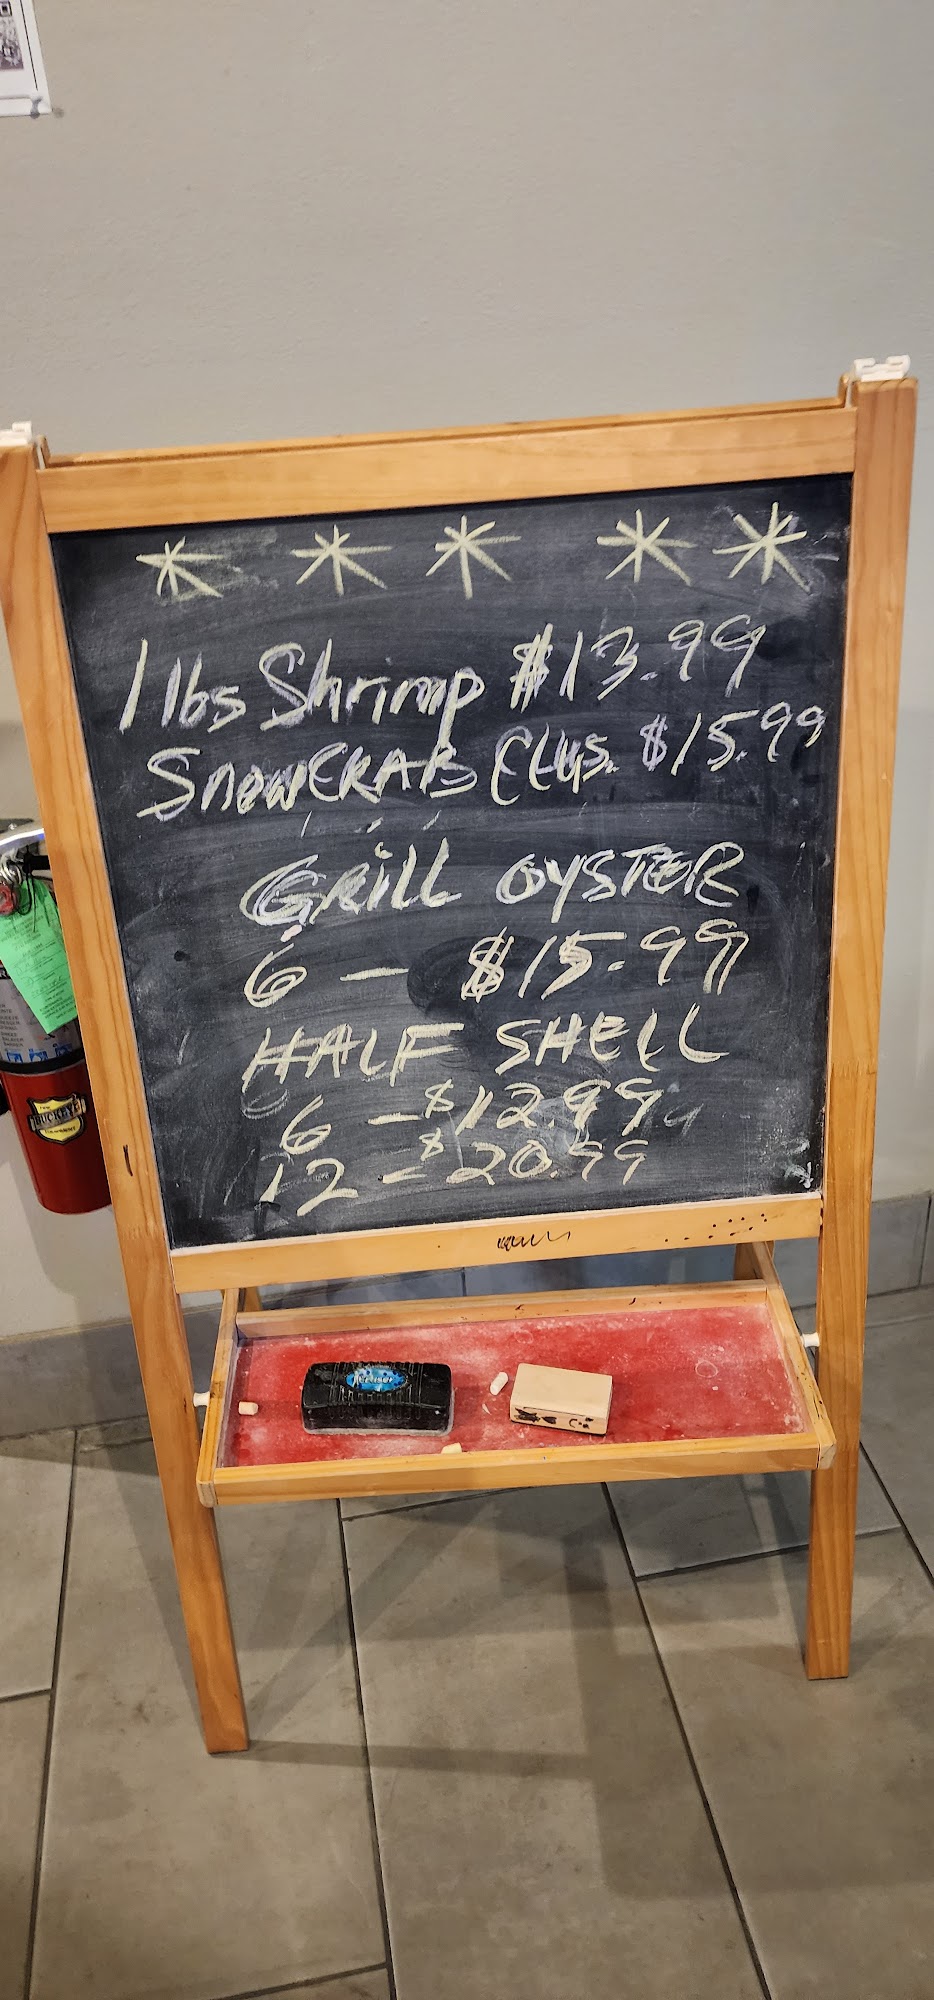 1 lbs Shrimp $13.99
SNOWCRAB Clus. $15.99
GRILL OYSTER
6 — $15.99
HALF SHELL
6 — $12.99
12 — $20.99
BUCKEYE